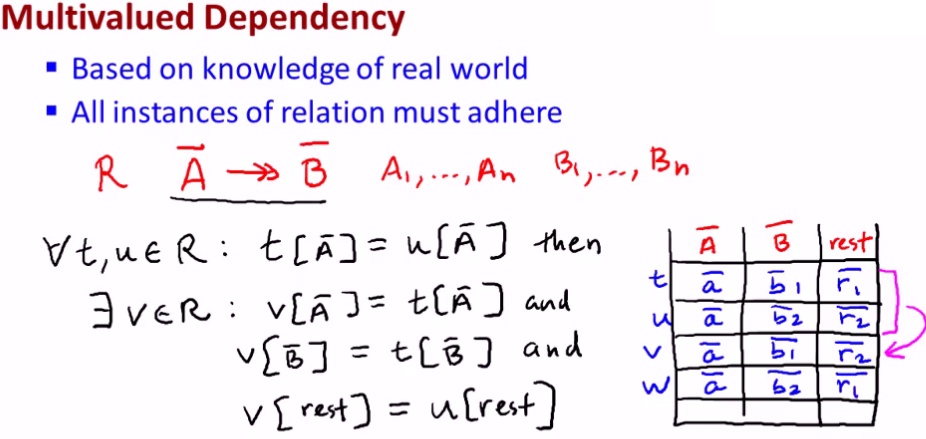 Multivalued Dependency
▪ Based on knowledge of real world
▪ All instances of relation must adhere
R A̅ ↠ B̅ A₁,...,Aₙ B₁,...,Bₙ
∀t,u∈R : t[A̅] = u[A̅] then
∃v∈R : v[A̅] = t[A̅] and
v[B̅] = t[B̅] and
v[rest] = u[rest]
A̅ B̅ rest
t a̅ b̅₁ r̅₁
u a̅ b̅₂ r̅₂
v a̅ b̅₁ r̅₂
w a̅ b̅₂ r̅₁